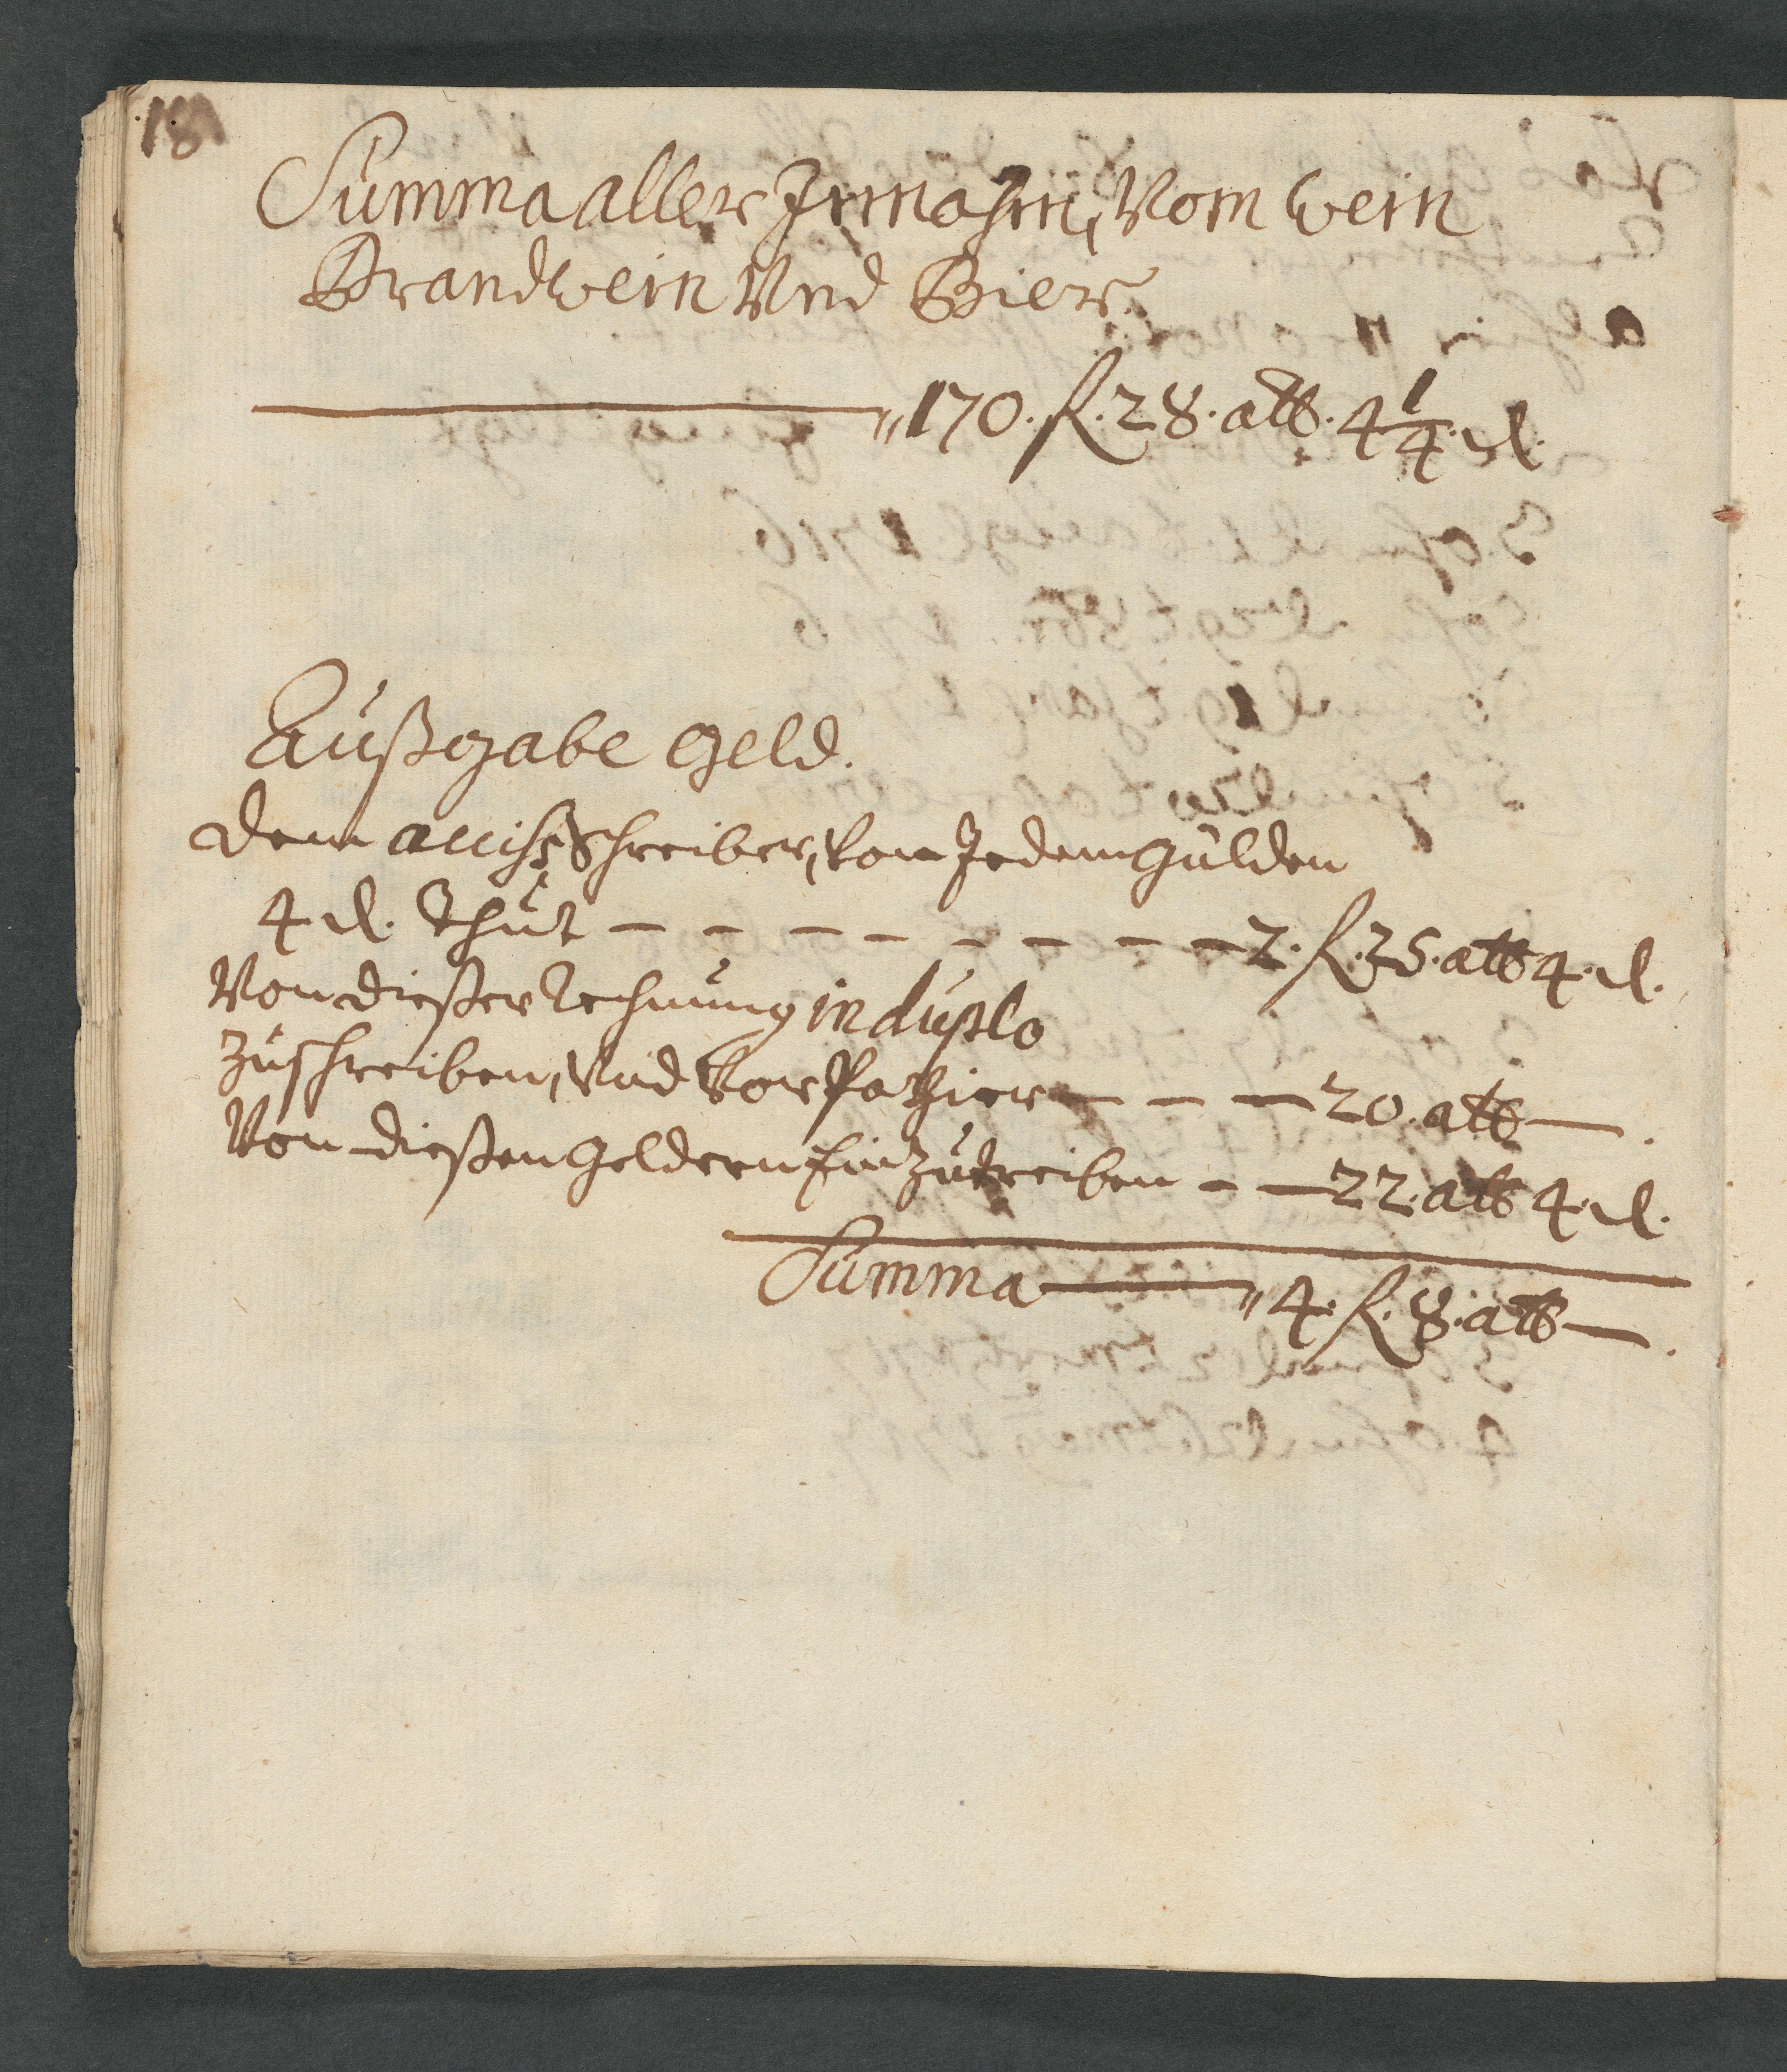 18
Summa aller Innahm, Vom wein
Brandwein Vnd Bier
170. fl. 28. alb. 4 1/4. d.
Außgabe geld.
dem acciß Schreiber, von Jedem gulden
4. d. Thut - - - - - - - - - 2. fl. 25. alb 4. d.
Von dießer Rechnung in duplo
zu schreiben, Vnd Vor Pappier - - - 20. alb -.
Von dießen geldern Einzutreiben - - 22. alb 4. d.
Summa 4. fl. 8. alb -.